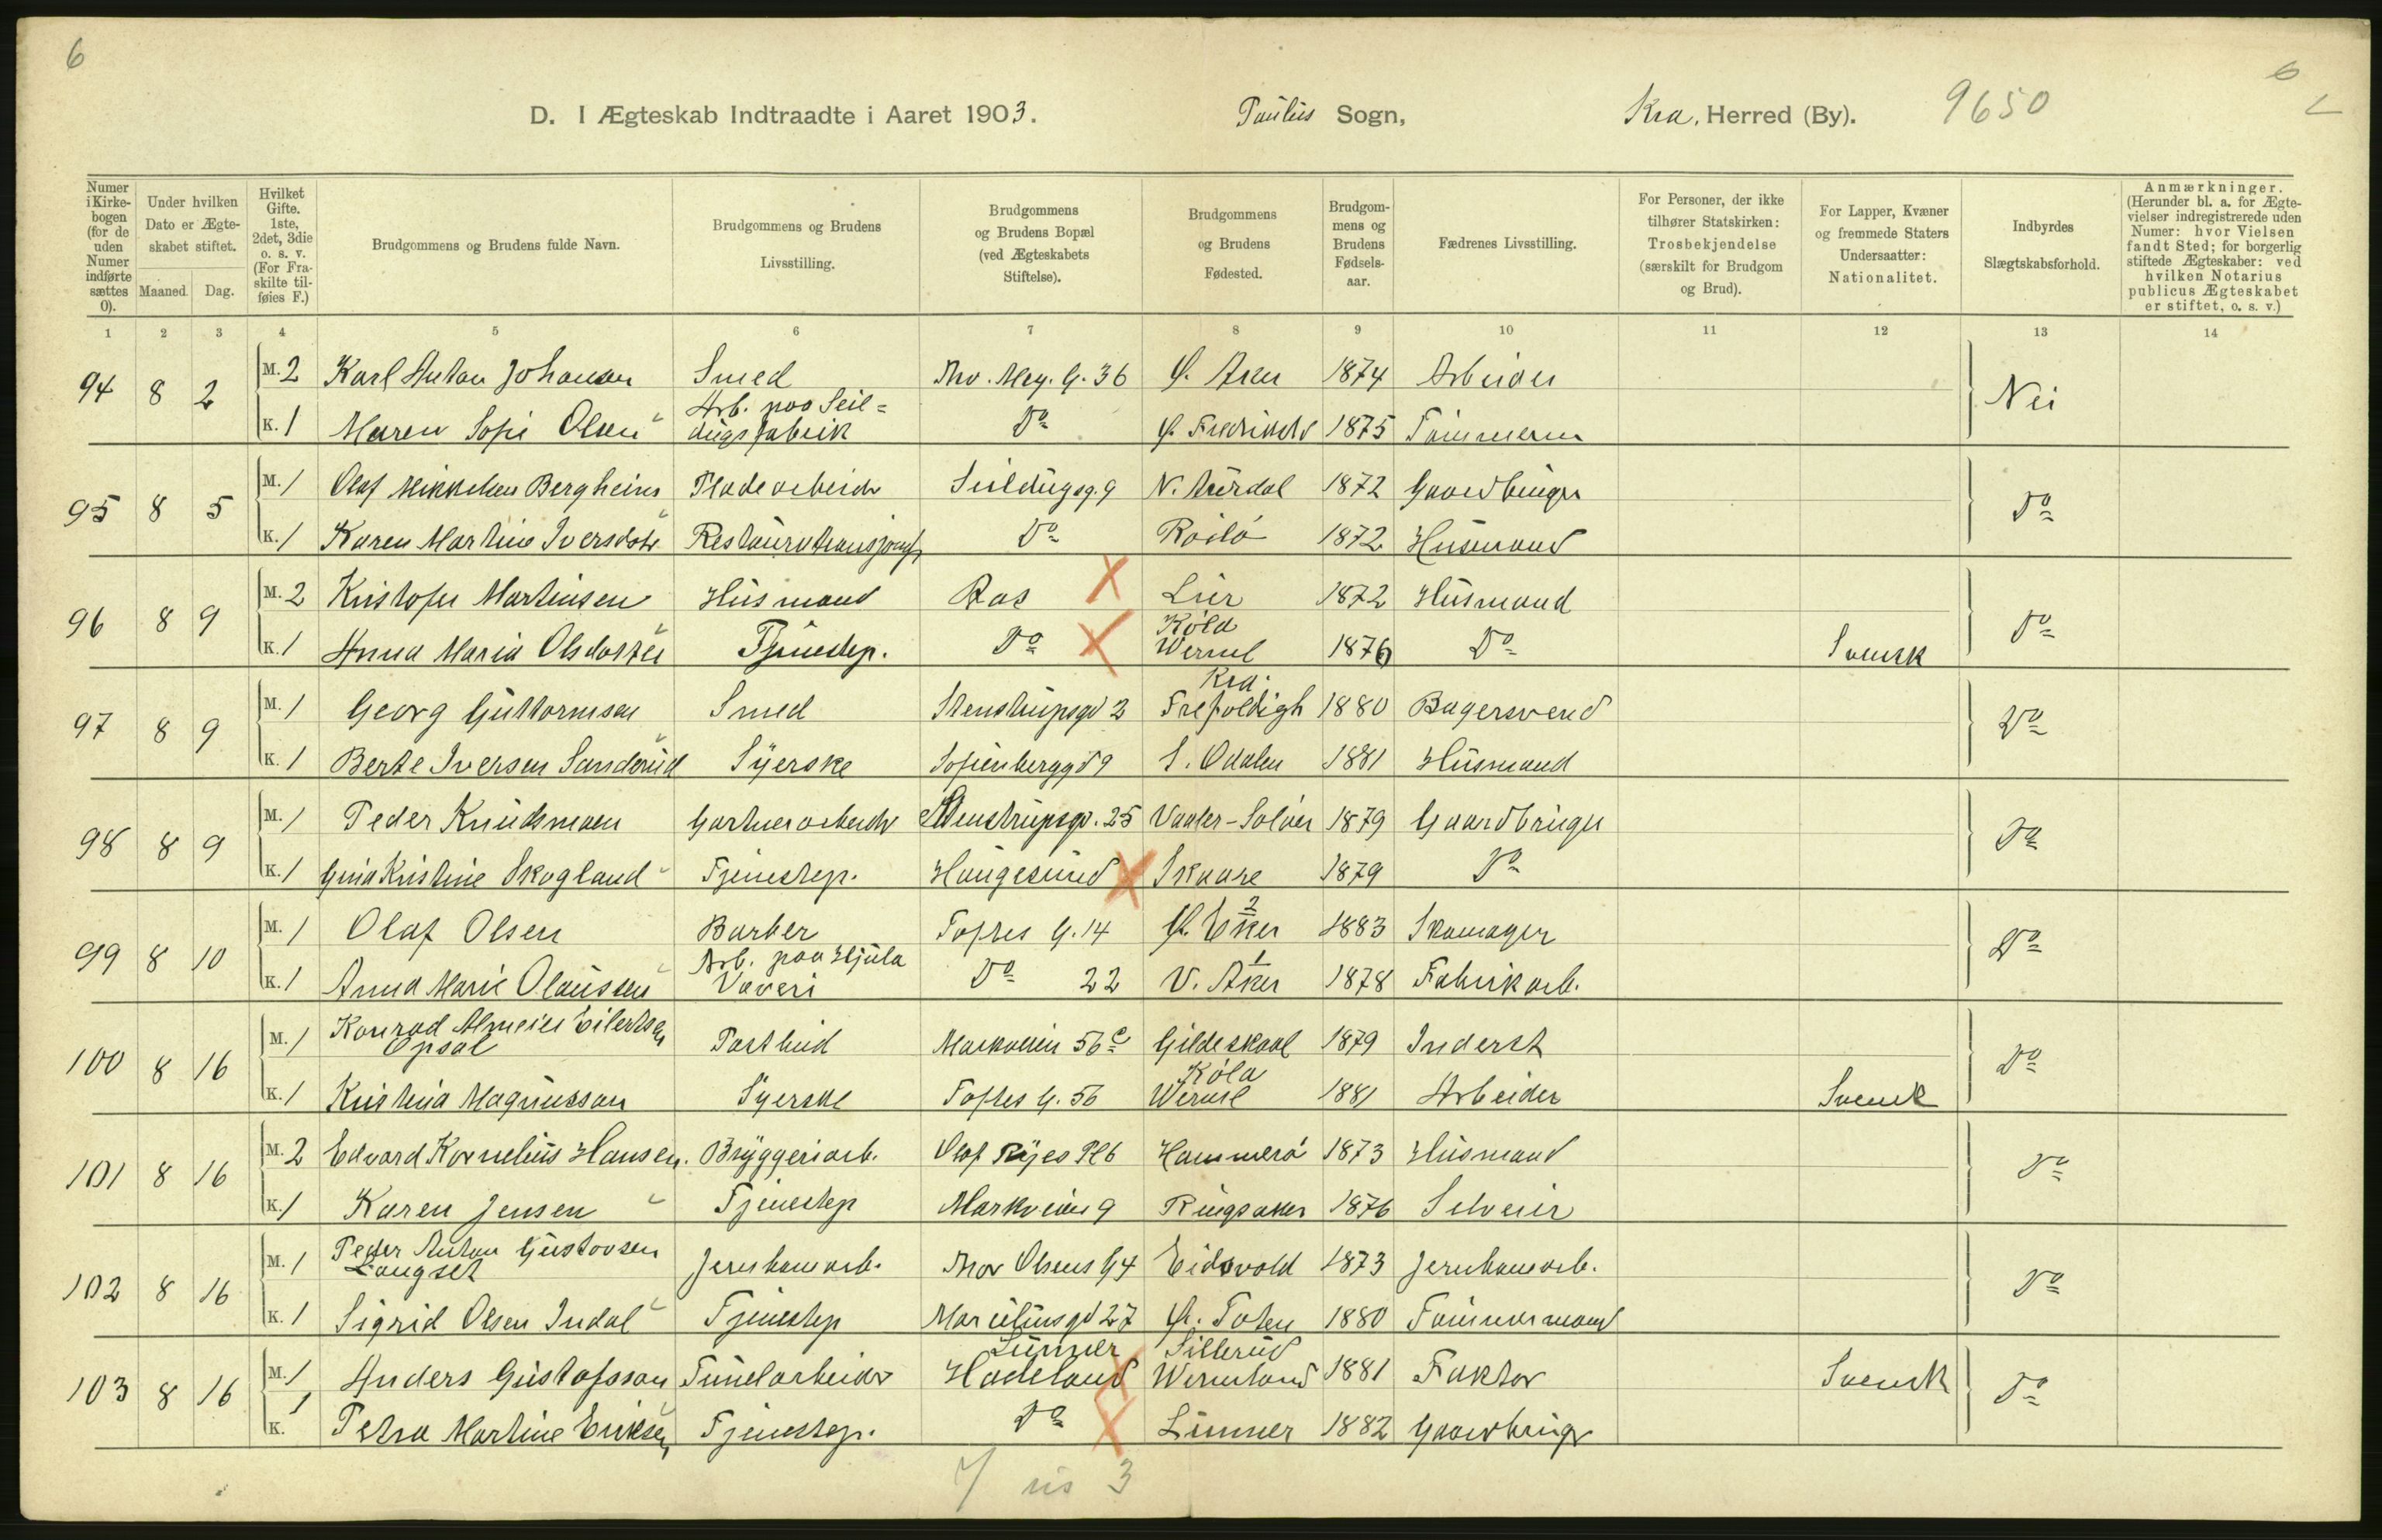 6
6
D. I Ægteskab Indtraadte i Aaret 1903. Paulus Sogn, Kra. Herred (By). 9650
Numer i Kirke- bogen (for de uden Numer indførte sættes 0).
Under hvilken Dato er Ægte- skabet stiftet.
Maaned. Dag.
Hvilket Gifte. 1ste, 2det, 3die o. s. v. (For Fra- skilte til- føies F.)
Brudgommens og Brudens fulde Navn.
Brudgommens og Brudens Livsstilling.
Brudgommens og Brudens Bopæl (ved Ægteskabets Stiftelse).
Brudgommens og Brudens Fødested.
Brudgom- mens og Brudens Fødsels- aar.
Fædrenes Livsstilling.
For Personer, der ikke tilhører Statskirken: Trosbekjendelse (særskilt for Brudgom og Brud).
For Lapper, Kvæner og fremmede Staters Undersaatter: Nationalitet.
Indbyrdes Slægtskabsforhold.
Anmærkninger. (Herunder bl. a. for Ægte- vielser indregistrerede uden Numer: hvor Vielsen fandt Sted; for borgerlig stiftede Ægteskaber: ved hvilken Notarius publicus Ægteskabet er stiftet, o. s. v.)
1 2 3 4 5 6 7 8 9 10 11 12 13 14
94 8 2 M. 2 Karl Anton Johansen Smed Thv. Mey. G. 36 Ø. Aker 1874 Arbeider Nei
K. 1 Maren Sofie Olsen Arb. paa Seil= dugsfabrik Do Ø. Fredrikst 1875 Tømmerm
95 8 5 M. 1 Olaf Mikkelsen Bergheim Pladearbeider Seildugsg. 9 N. Aurdal 1872 Gaardbruger Do
K. 1 Karen Martine Iversdatr Restaurationsjomfr Do 1872 Husmand
96 8 9 M. 2 Kristofer Martinsen Husmand Aas Lier 1872 Husmand Do
K. 1 Anna Maria Olsdotter Tjenestep. Do Köla Werml 1876 Do Svensk
97 8 9 M. 1 Georg Guttormsen Smed Stenstrupsgd 2 Kra. Trefoldigh 1880 Bagersvend Do
K. 1 Berte Iversen Sanderud Syerske Sofienberggd 9 S. Odalen 1881 Husmand
98 8 9 M. 1 Peder Knudsmoen Gartnerarbeider Stenstrupsgd. 25 Vaaler-Solør 1879 Gaardbruger Do
K. 1 Gina Kristine Skogland Tjenestep. Haugesund Skaare 1879 Do
99 8 10 M. 1 Olaf Olsen Barber Toftes G. 14 Ø. Eker 2 1883 Skomager Do
K. 1 Anna Marie Olaussen Arb. paa Hjula Væveri Do 22 V. Aker 1 1878 Fabrikarb.
100 8 16 M. 1 Konrad Almeier Eilertsen Opsal Postbud Markveien 56 c Gildeskaal 1879 Inderst Do
K. 1 Kristina Magnusson Syerske Toftes G. 56 Köla Werml 1881 Arbeider Svensk
101 8 16 M. 2 Edvard Kornelius Hansen. Bryggeriarb. Olaf Ryes Pl 6 Hammerø 1873 Husmand Do
K. 1 Karen Jensen Tjenestep Markveien 9 Ringsaker 1876 Selveier
102 8 16 M. 1 Peder Anton Gustavsen Langset Jernbanearb. Thor Olsens G 4 Eidsvold 1873 Jernbanearb. Do
K. 1 Sigrid Olsen Indal Tjenestep Maridalsgd 27 Ø. Toten 1880 Tømmermand
103 8 16 M. 1 Anders Gustafsson Tunelarbeider Lunner Hadeland Sillerud Wermland 1881 Faktor Svensk Do
K. 1 Petra Martine Eriksen Tjenestep. Do Lunner 1882 Gaardbruger
7 us 3